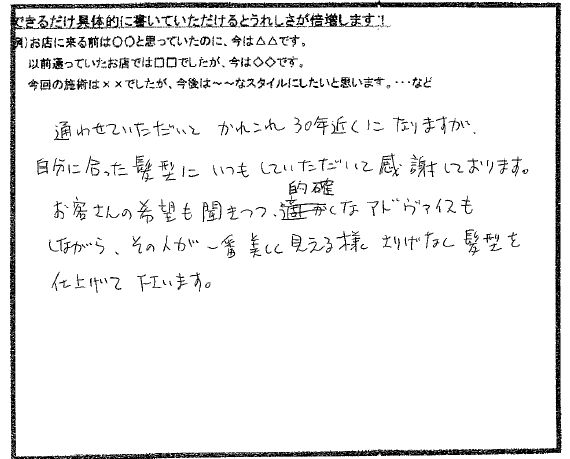 できるだけ具体的に書いていただけるとうれしさが倍増します！
例）お店に来る前は○○と思っていたのに、今は△△です。
以前通っていたお店では□□でしたが、今は◇◇です。
今回の施術は××でしたが、今後は～～なスタイルにしたいと思います。･･･など
通わせていただいて かれこれ 30年近くになりますが、
自分に合った髪型に いつもしていただいて感謝しております。
お客さんの希望も聞きつつ、的確なアドヴァイスも
しながら、その人が一番美しく見える様に さりげなく髪型を
仕上げて下さいます。